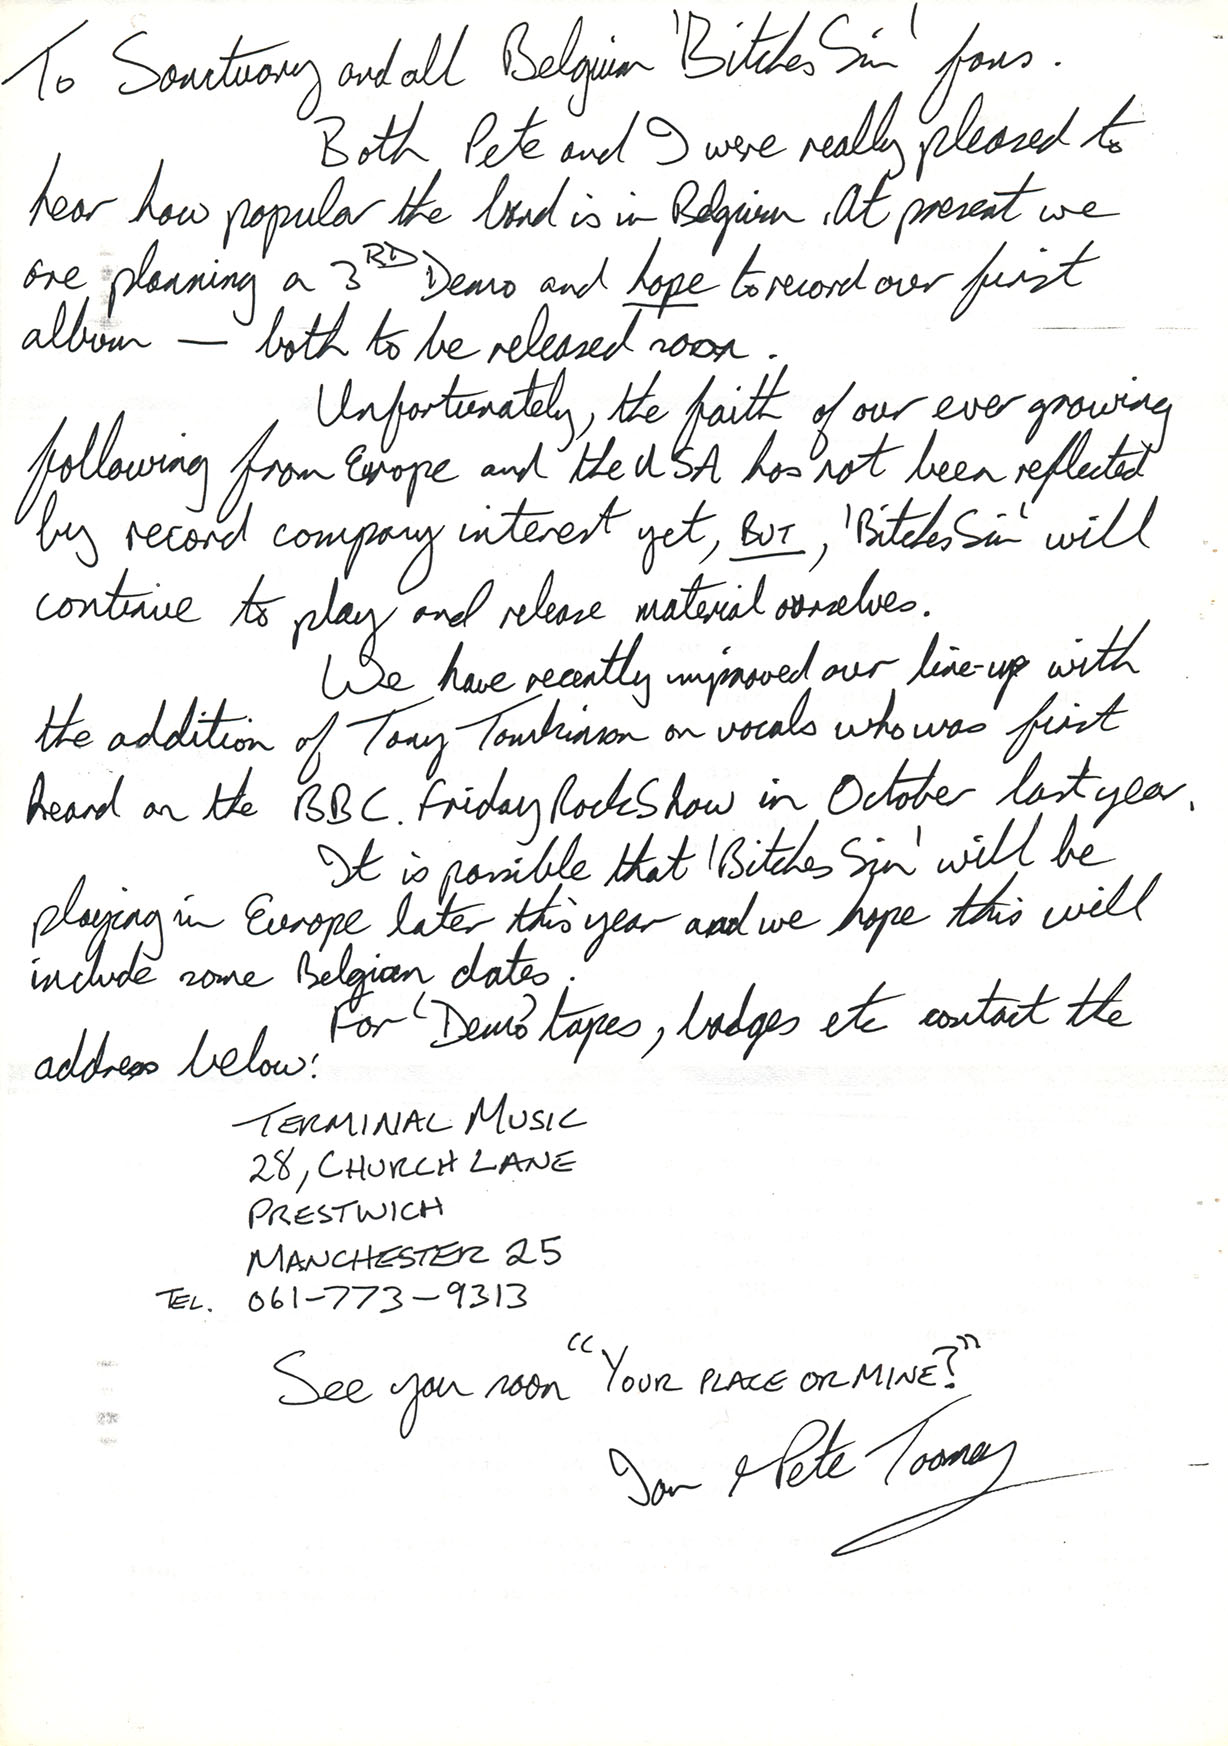 To Sanctuary and all Belgium 'Bitches Sin' fans.
Both Pete and I were really pleased to
hear how popular the band is in Belgium. At present we
are planning a 3RD Demo and hope to record our first
album — both to be released soon.
Unfortunately, the faith of our ever growing
following from Europe and the USA has not been reflected
by record company interest yet, BUT, 'Bitches Sin' will
continue to play and release material ourselves.
We have recently improved our line-up with
the addition of Tony Tomkinson on vocals who was first
heard on the BBC. Friday Rock Show in October last year.
It is possible that 'Bitches Sin' will be
playing in Europe later this year and we hope this will
include some Belgian dates.
For 'Demo' tapes, badges etc contact the
address below:
TERMINAL MUSIC
28, CHURCH LANE
PRESTWICH
MANCHESTER 25
TEL. 061-773-9313
See you soon "YOUR PLACE OR MINE?"
Ian & Pete Toomey